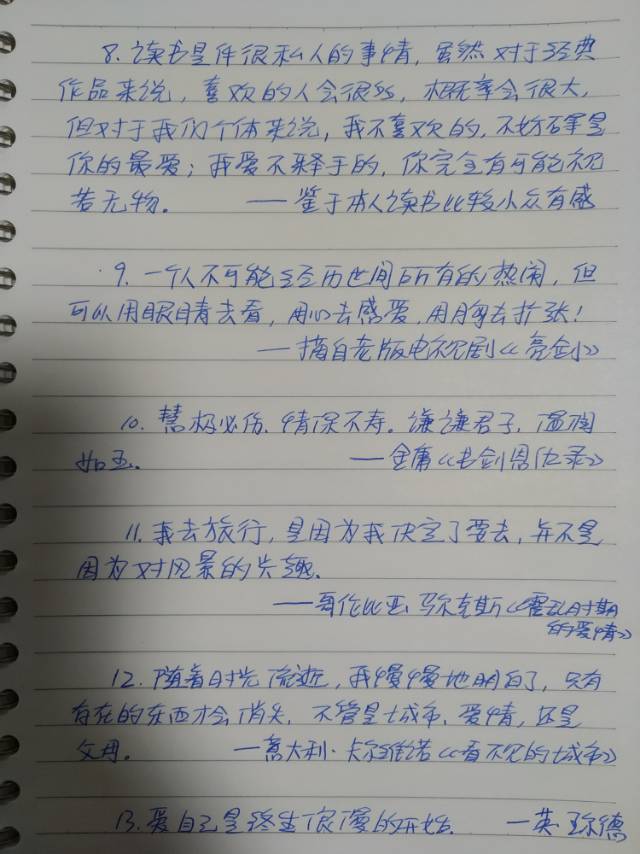 8. 读书是件很私人的事情，虽然对于经典
作品来说，喜欢的人会很多，概率会很大，
但对于我们个体来说，我不喜欢的，不妨碍是
你的最爱；我爱不释手的，你完全有可能视
若无物。 ——鉴于本人读书比较小众有感
9. 一个人不可能经历世间所有的热闹，但
可以用眼睛去看，用心去感受，用胸去扩张！
——摘自老版电视剧《亮剑》
10. 慧极必伤，情深不寿。谦谦君子，温润
如玉。 ——金庸《书剑恩仇录》
11. 我去旅行，是因为我决定了要去，并不是
因为对风景的兴趣。
——哥伦比亚·马尔克斯《霍乱时期
的爱情》
12. 随着时光流逝，我慢慢地明白了，只有
存在的东西才会消失，不管是城市，爱情，还是
父母。 ——意大利·卡尔维诺《看不见的城市》
13. 爱自己是终生浪漫的开始。 ——英·王尔德